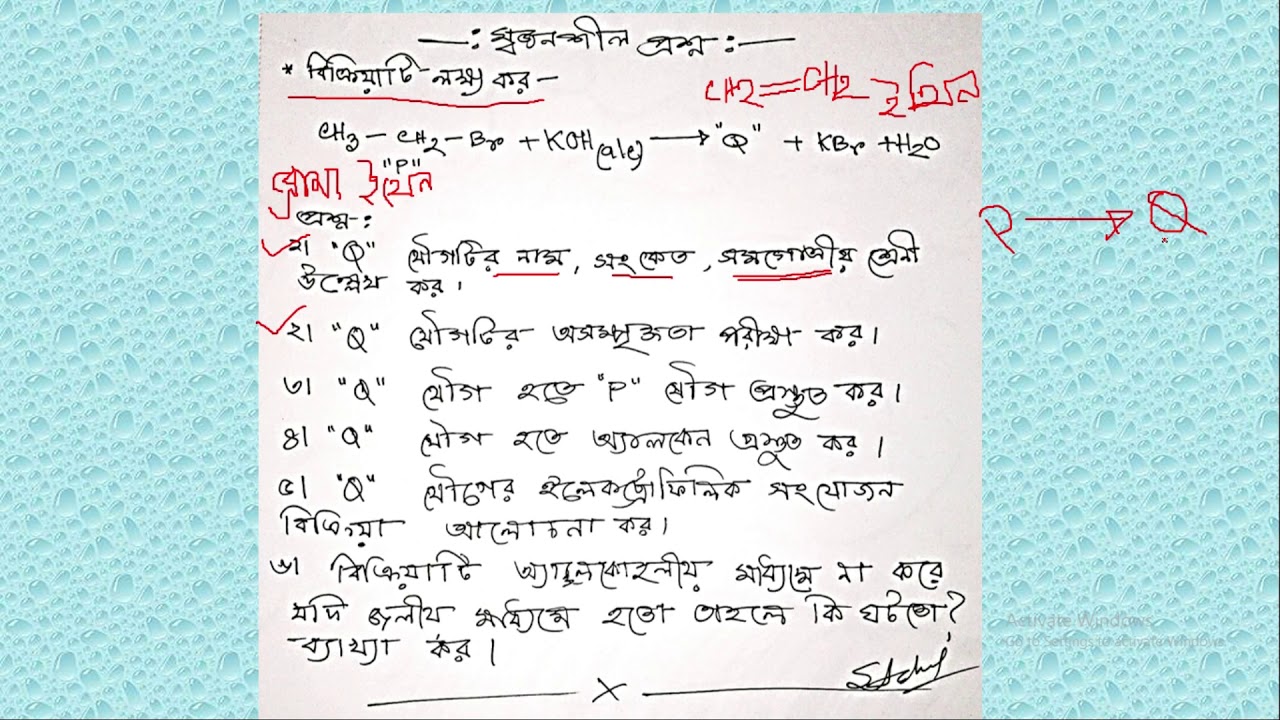 —: সৃজনশীল প্রশ্ন :—
* বিক্রিয়াটি লক্ষ্য কর –
CH2=CH2 ইথিন
CH3 – CH2 – Br + KOH(alc) ⟶ "Q" + KBr + H2O
"P"
ব্রোমো ইথেন
P ⟶ Q
প্রশ্ন-:
১। "Q" যৌগটির নাম, সংকেত, সমগোত্রীয় শ্রেনী
উল্লেখ কর।
২। "Q" যৌগটির অসম্পৃক্ততা পরীক্ষা কর।
৩। "Q" যৌগ হতে "P" যৌগ প্রস্তুত কর।
৪। "Q" যৌগ হতে অ্যালকেন প্রস্তুত কর।
৫। "Q" যৌগের ইলেকট্রোফিলিক সংযোজন
বিক্রিয়া আলোচনা কর।
৬। বিক্রিয়াটি অ্যালকোহলীয় মাধ্যমে না করে
যদি জলীয় মাধ্যমে হতো তাহলে কি ঘটতো?
ব্যাখ্যা কর।
Activate Windows
Go to Settings to activate Windows.
X